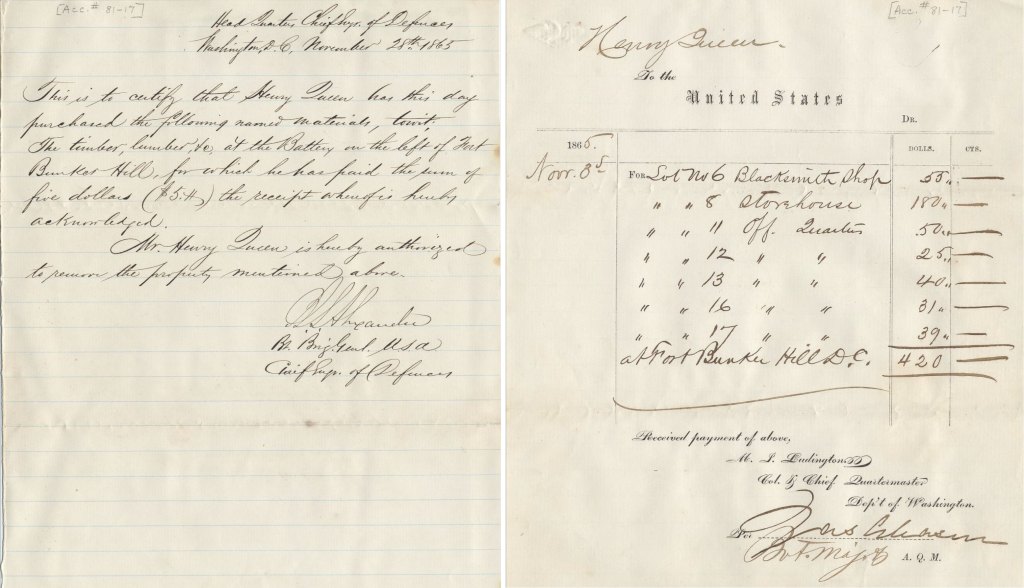 [Acc. # 81-17]
Head Quarters Chief Engr. of Defences
Washington, D.C, November 28th 1865
This is to certify that Henry Queen has this day
purchased the following named materials, towit;
The timber, lumber, &c, at the Battery on the left of Fort
Bunker Hill, for which he has paid the sum of
five dollars ($5.) the receipt whereof is hereby
acknowledged.
Mr. Henry Queen is hereby authorized
to remove the property mentioned above.
Alexander
Bt. Brig. Genl. U.S.A
Chief Engr. of Defences
[Acc. # 81-17]
Henry Queen.
To the
United States
DR.
1865. DOLLS. CTS.
Nov. 3d For Lot No 6 Blacksmith Shop 55 " —
" " 8 Storehouse 180 " —
" " 11 Off. Quarters 50 " —
" " 12 " " 25 " —
" " 13 " " 40 " —
" " 16 " " 31 " —
" " 17 " " 39 " —
at Fort Bunker Hill D.C. 420 —
Received payment of above,
M. I. Ludington
Col. & Chief Quartermaster
Dep't of Washington.
For Jas Gleason
Bvt. Major A. Q. M.